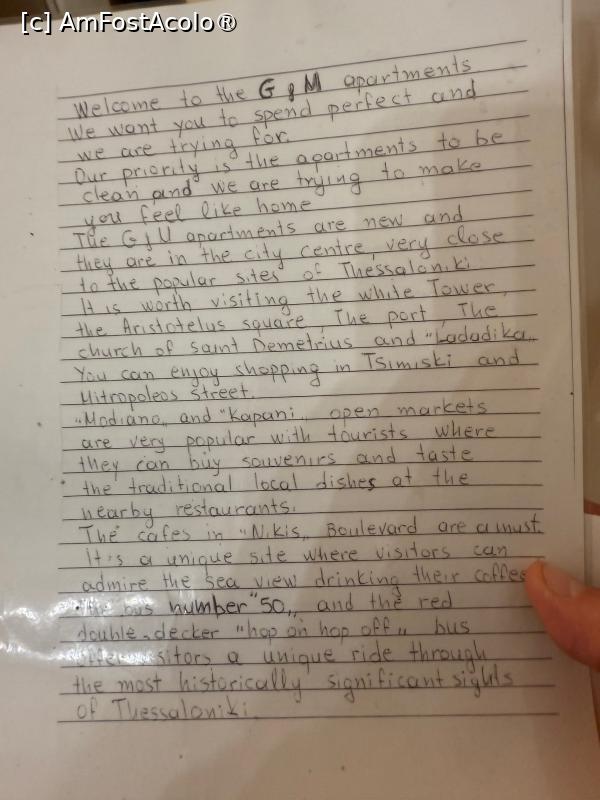 [c] AmFostAcolo®
Welcome to the G & M apartments
We want you to spend perfect and
we are trying for.
Our priority is the apartments to be
clean and we are trying to make
you feel like home
The G & M apartments are new and
they are in the city centre, very close
to the popular sites of Thessaloniki
It is worth visiting the white Tower,
the Aristotelus square, The port, The
church of saint Demetrius and "Ladadika„
You can enjoy shopping in Tsimiski and
Mitropoleos street.
"Modiano„ and "Kapani„ open markets
are very popular with tourists where
they can buy souvenirs and taste
the traditional local dishes at the
nearby restaurants.
The cafes in "Nikis„ Boulevard are a must.
It's a unique site where visitors can
admire the sea view drinking their coffee
The bus number "50„ and the red
double-decker "hop on hop off„ bus
a unique ride through
the most historically significant sights
of Thessaloniki.